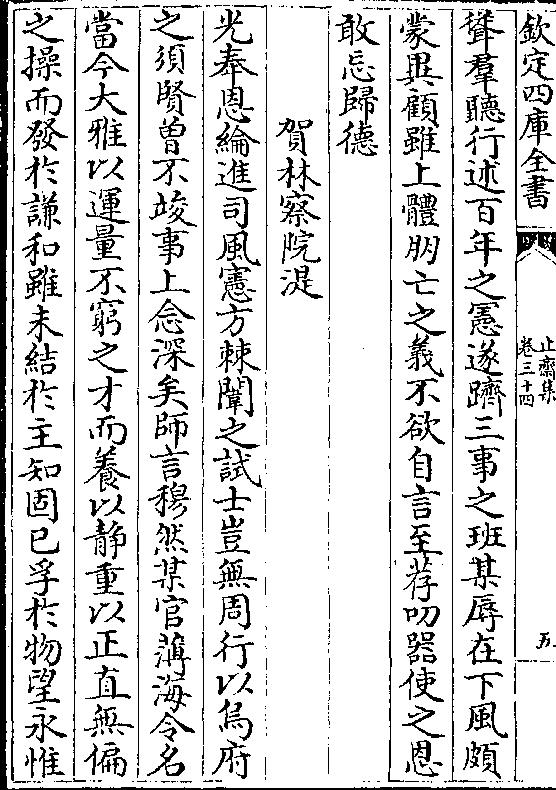 欽定四庫全書
止齋集
卷三十四
五
聳羣聽行述百年之憲遂躋三事之班某辱在下風頗
蒙異顧雖上體朋亡之義不欲自言至荐叨器使之恩
敢忘歸德
賀林察院湜
光奉恩綸進司風憲方棘闈之試士豈無周行以烏府
之須賢曾不竣事上念深矣師言穆然某官薄海令名
當今大雅以運量不窮之才而養以静重以正直無偏
之操而發於謙和雖未結於主知固已孚於物望永惟